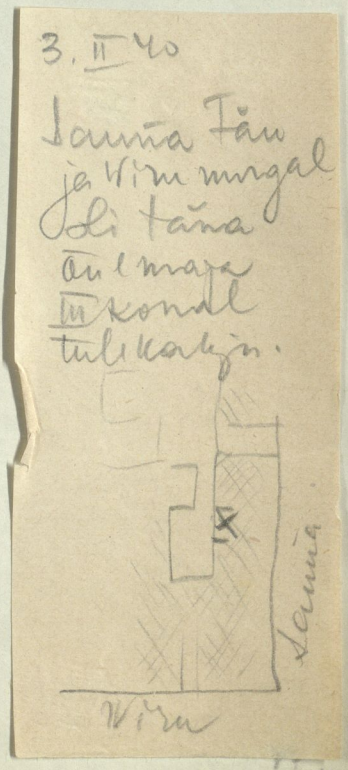 3. II 40
Sauna Tän
ja Wiru nurgal
oli täna
maja
III korral
tulekahju.
X
Sauna
Wiru